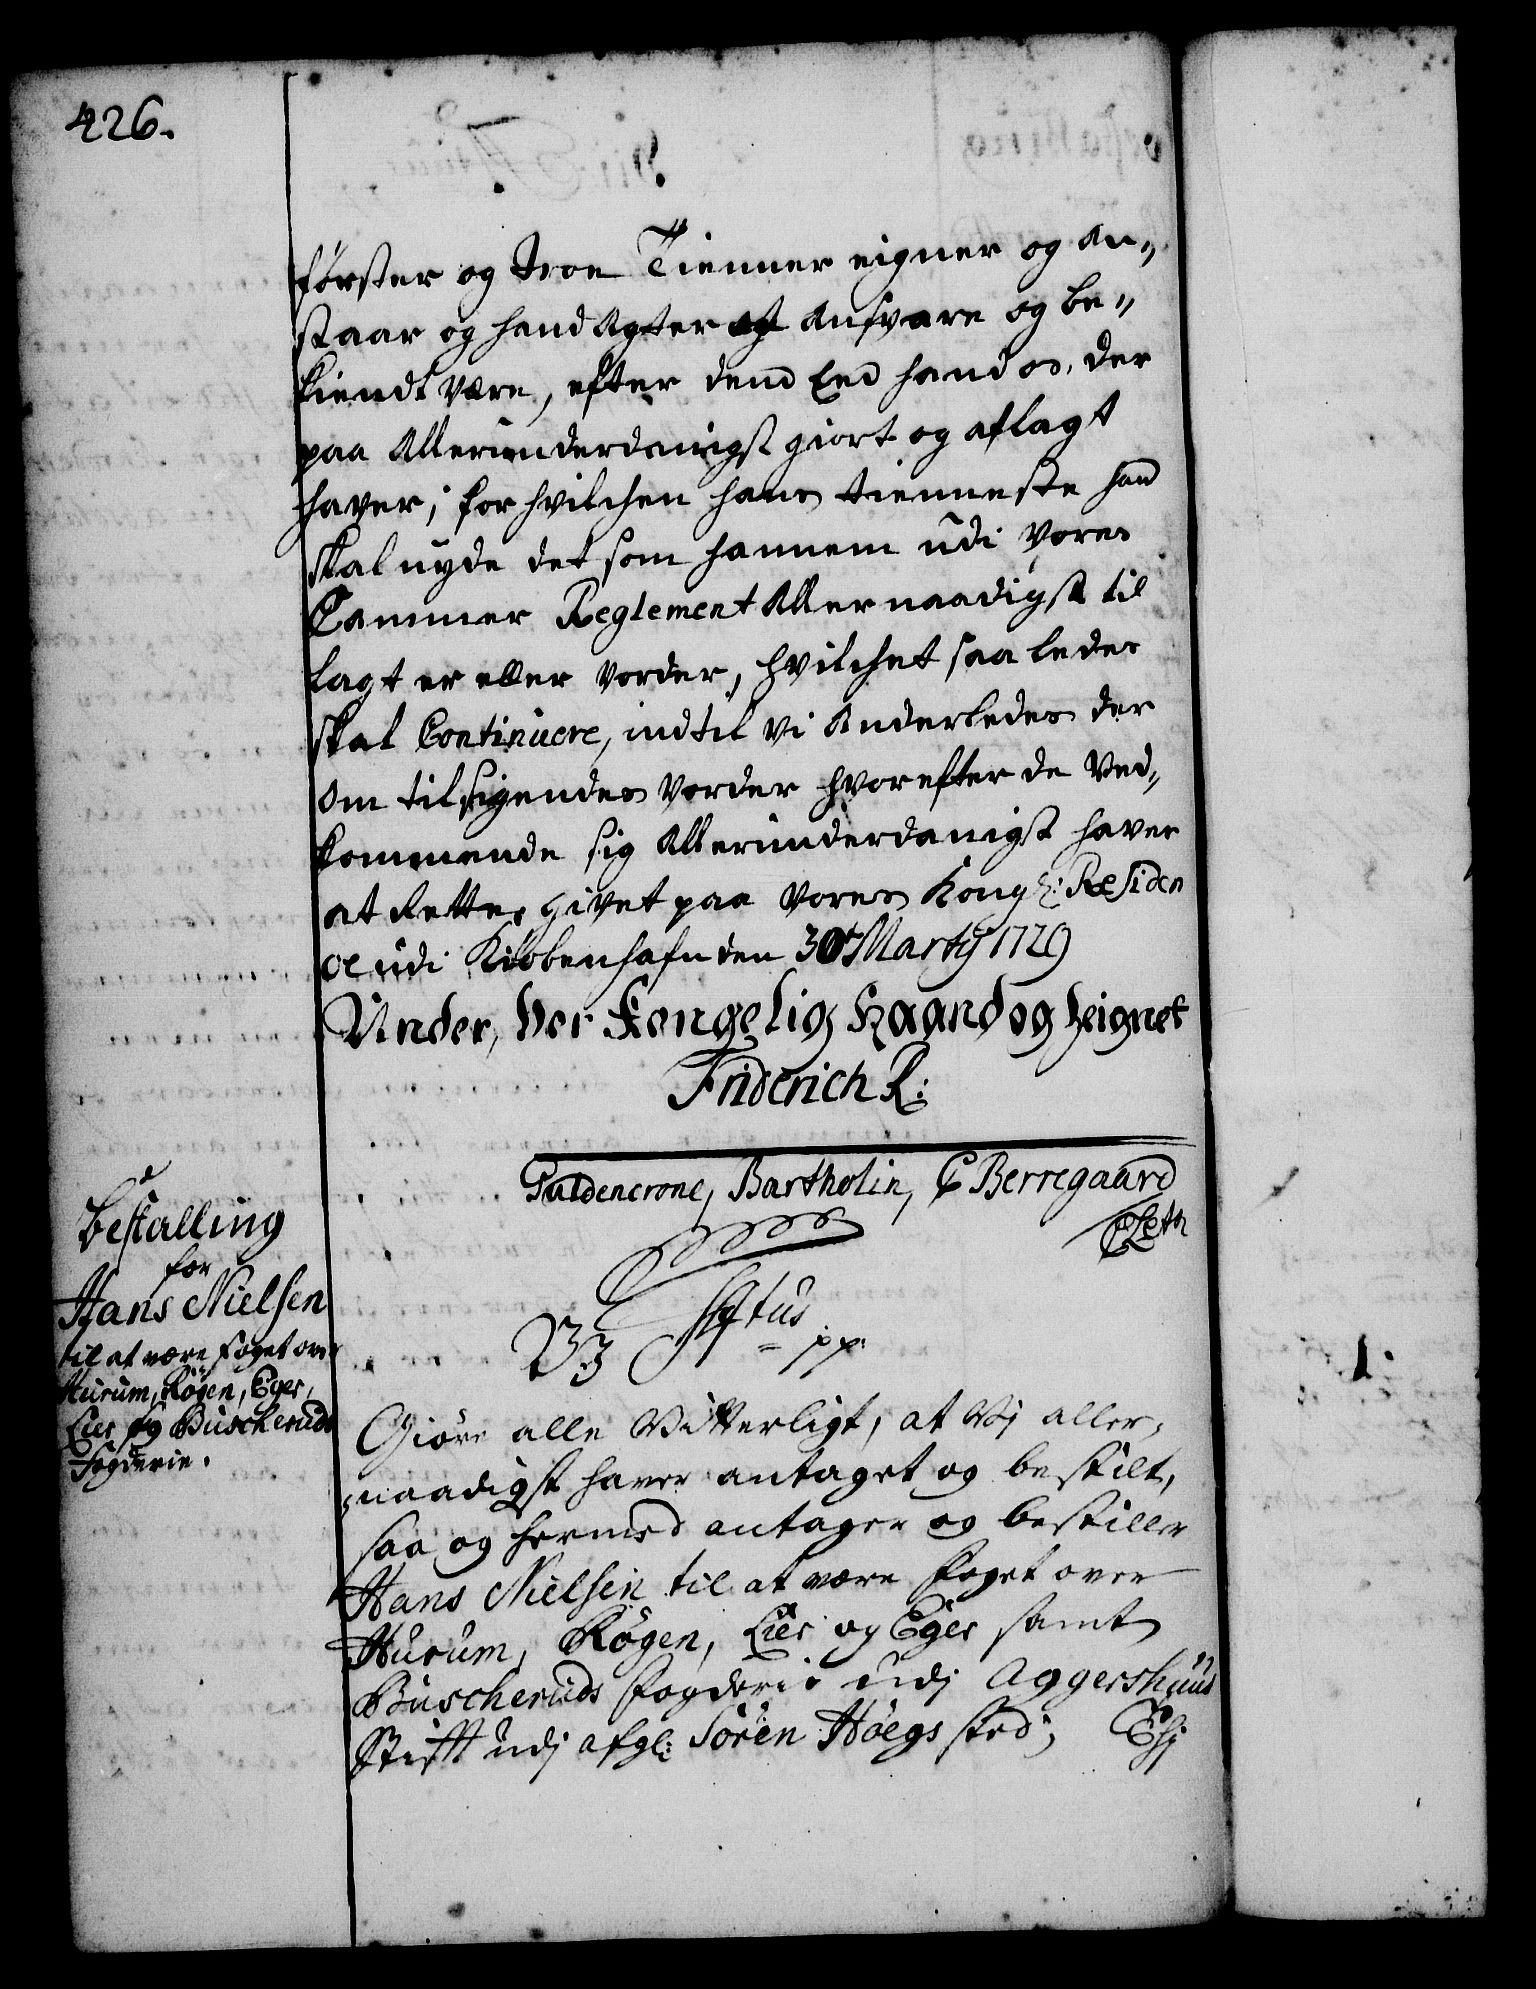 426.
förster og troe Tienner eigner og an„
staar og hand agter at ansvare og be„
kiendt være, efter dend Eed hand os der
paa allerunderdanigst giort og aflagt
haver; for hvilchen hans tienneste hand
skal nyde det som hannem udi Vores
Cammer Reglement Allernaadigst til
lagt er eller vorder, hvilchet saaledes
skal Continuere, indtil Vi anderledes der
om tilsigendes vorder hvorefter de Ved„
kommende sig Allerunderdanigst haver
at Rette, givet paa Vores Kongl: Residen
ce udi Kiøbenhafn den 30 Martij 1729
Under, Vor Kongelig Haand og Zeignet
Friderich R:
Guldencrone, Bartholin, C Berregaard
Bestalling
for
Hans Nielsen
til at være Foget over
Hurum, Rögen, Eger,
Lier og Buscheruds
Fogderie.
V: F: 4tus
pp.
Giöre alle Vitterligt, at Vj aller„
naadigst haver antaget og bestilt,
saa og hermed antager og bestiller
Hans Nielsen til at være Foget over
Hurum, Rögen, Lier og Eger samt
Buscheruds Fogderie udj Aggershuus
Stifft udj afgl: Sören Höegs sted;